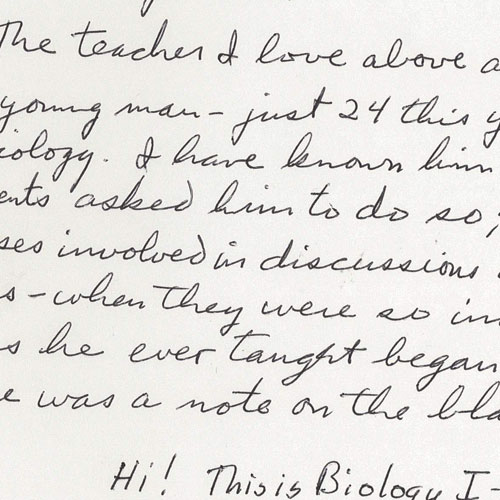 The teacher I love above a
young man - just 24 this y
iology. I have known him
ents asked him to do so;
ses involved in discussions
s - when they were so in
s he ever taught began
e was a note on the bla
Hi! This is Biology I -